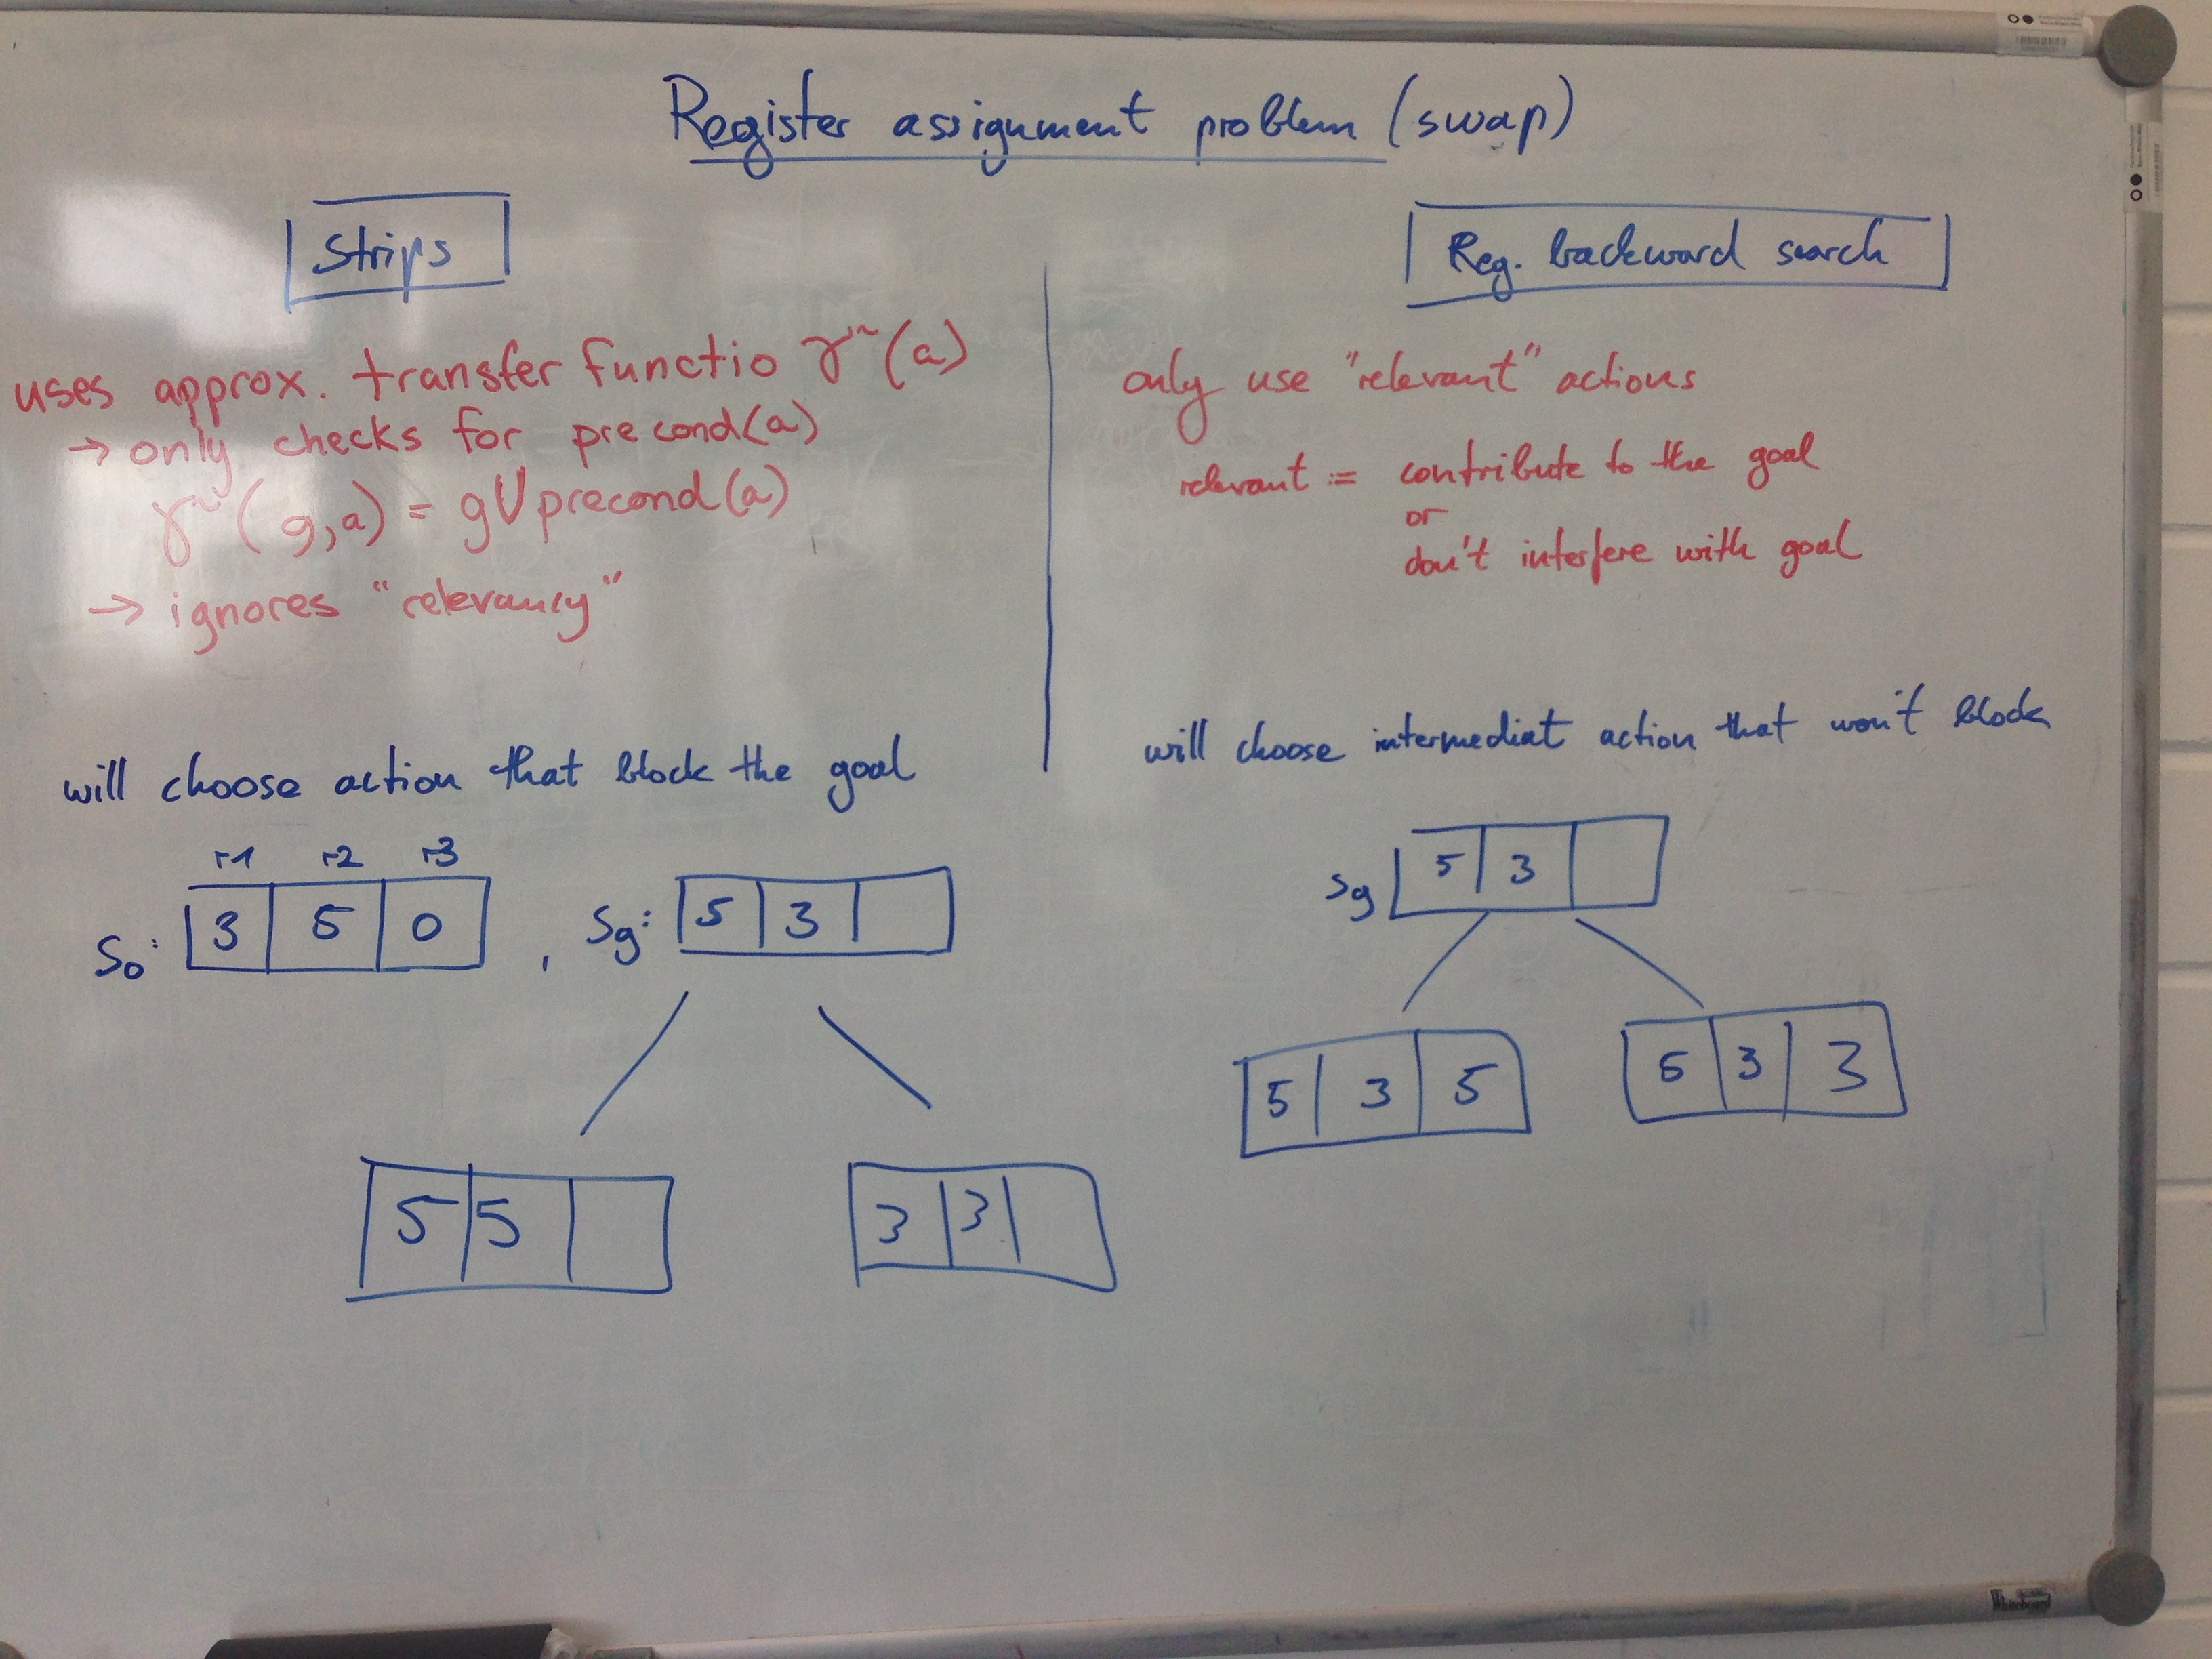 Register assignment problem (swap)
Strips
uses approx. transfer functio γ~(a)
→ only checks for precond(a)
γ~(g,a) = g∪precond(a)
→ ignores "relevancy"
will choose action that block the goal
r1 r2 r3
S0: 3 5 0 , Sg: 5 3
5 5
3 3
Reg. backward search
only use "relevant" actions
relevant := contribute to the goal
or
don't interfere with goal
will choose intermediat action that won't block
Sg 5 3
5 3 5
5 3 3
Whiteboard